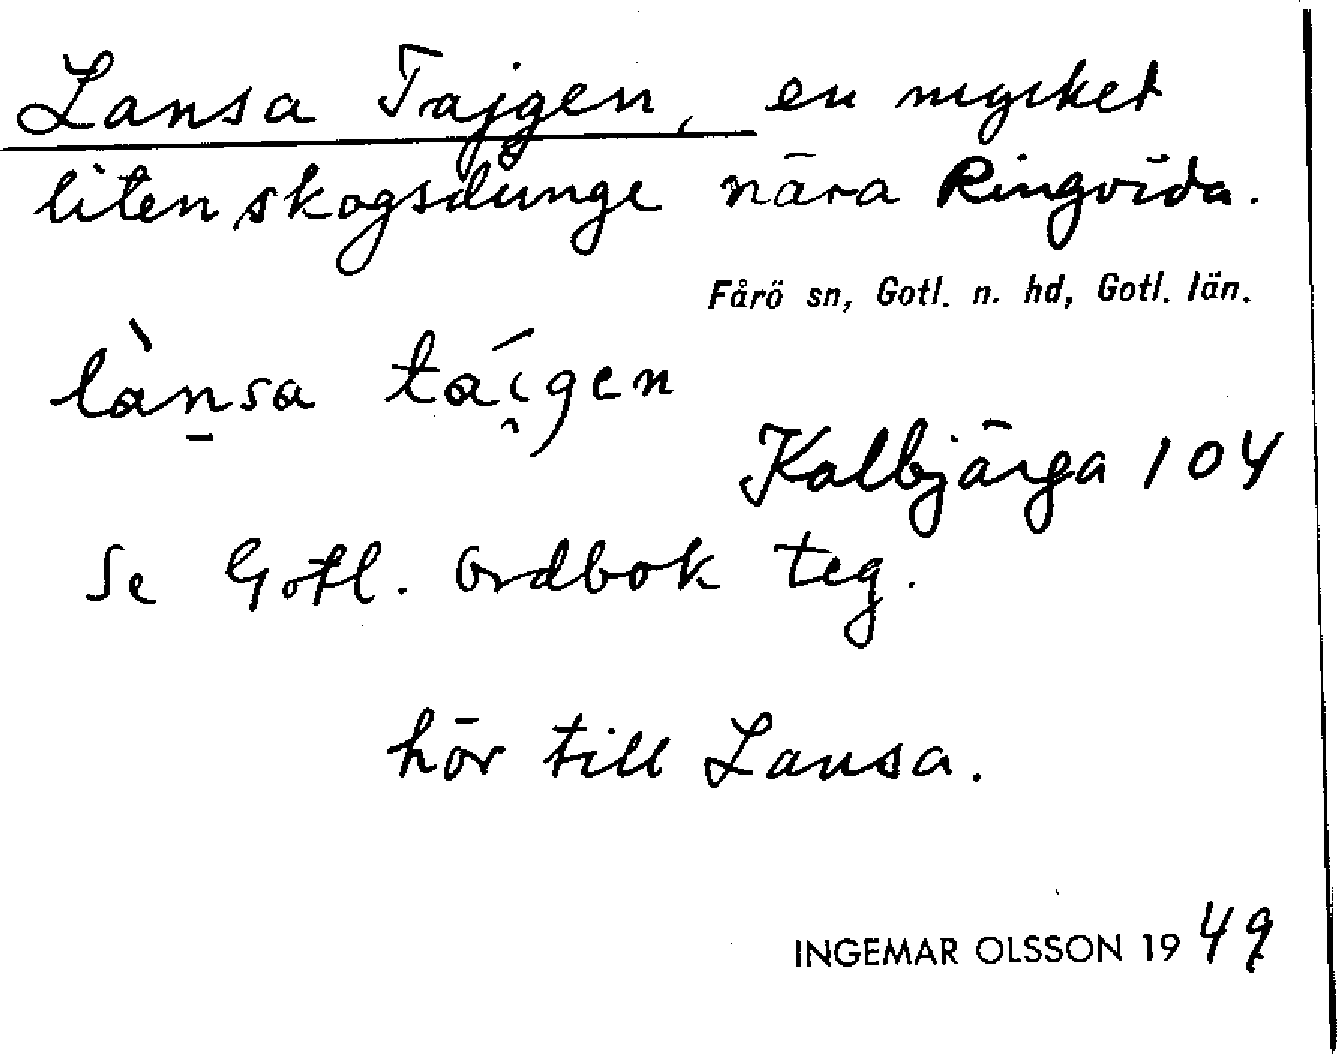 Lansa Tajgen, en mycket
liten skogsdunge nära Ringvida.
Fårö sn, Gotl. n. hd, Gotl. län.
làn̲sa tái̯gen
Kalbjärga 104
Se Gotl. Ordbok teg.
hör till Lansa.
INGEMAR OLSSON 1949